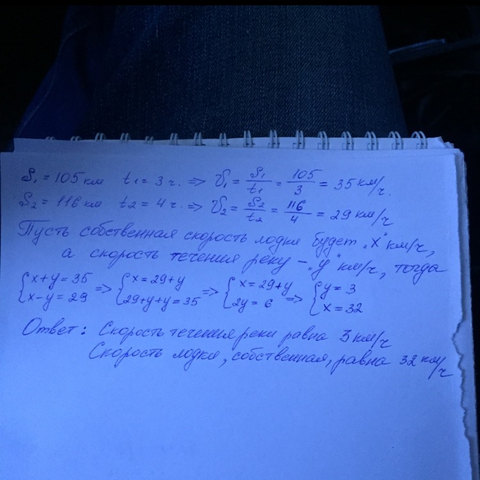 S₁ = 105 км t₁ = 3 ч. => V₁ = S₁/t₁ = 105/3 = 35 км/ч.
S₂ = 116 км t₂ = 4 ч. => V₂ = S₂/t₂ = 116/4 = 29 км/ч.
Пусть собственная скорость лодки будет "x" км/ч,
а скорость течения реку - "y" км/ч, тогда
{x+y=35 x-y=29 => {x=29+y 29+y+y=35 => {x=29+y 2y=6 => {y=3 x=32
Ответ: Скорость течения реки равна 3 км/ч
Скорость лодки, собственная, равна 32 км/ч